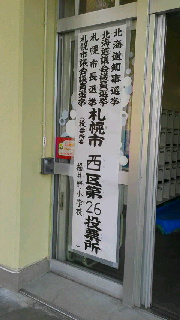 北海道知事選挙
北海道議会議員選挙
札幌市長選挙
札幌市議会議員選挙
札幌市 西区第26投票所